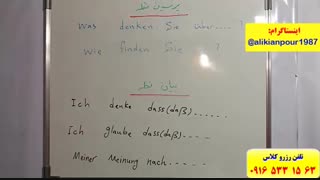 پرسیدن نظر
Was denken Sie über....?
Wie finden Sie ?
بیان نظر
Ich denke dass(daß).....
Ich glaube dass(daß)....
Meiner Meinung nach.....
اینستاگرام:
@alikianpour1987
تلفن رزرو کلاس
۰۹۱۶ ۵۳۳ ۱۵ ۶۳